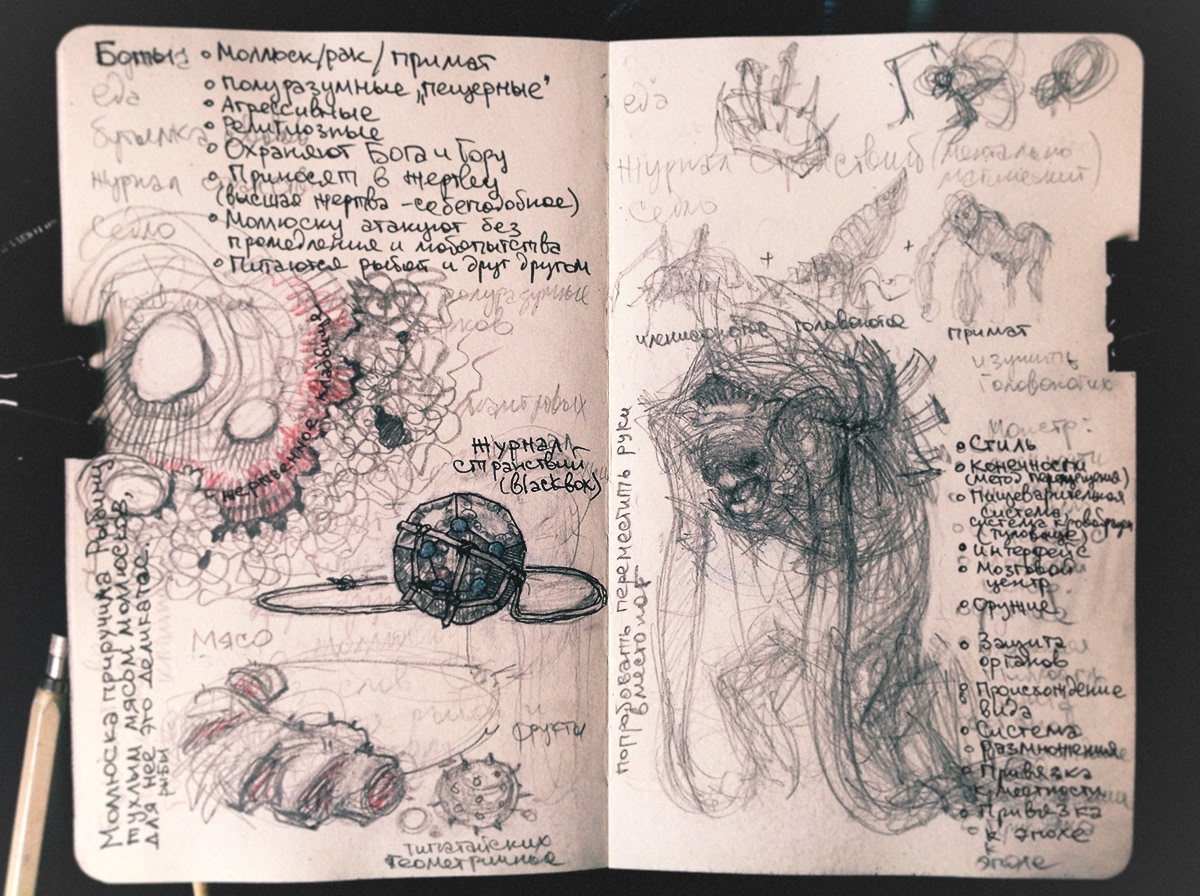 Боты:
• Моллюск/рак/примат
• Полуразумные „пещерные"
• Агрессивные
• Религиозные
• Охраняют Бога и Гору
• Приносят в жертву
(высшая жертва - себеподобное)
• Моллюску атакуют без
промедление и любопытства
• Питаются рыбой и друг другом
еда
бутылка
журнал
седло
полуразумные
жертвенное кладбище
журнал
странствий
(blackbox)
Мясо
слов
фрукты
типатайских
геометричные
Моллюска приручила рыбину
тухлым мясом моллюсков,
для нее это деликатес.
рыбы
еда
журнал странствий (ментально
седло
+
+
членистоногое
головоногое
примат
изучить
головоногих
попробовать переместить руки
вместо ног
Монстр:
• Стиль
• Конечности
(метод перемещения)
• Пищеварительная
система,
система кровообращ
(туловище)
• Интерфейс
• Мозговой
центр
• Оружие
• Защита
органов
• Происхождение
вида
• Система
размножения
• Привязка
к местности
• Привязка
к эпохе
эпохе